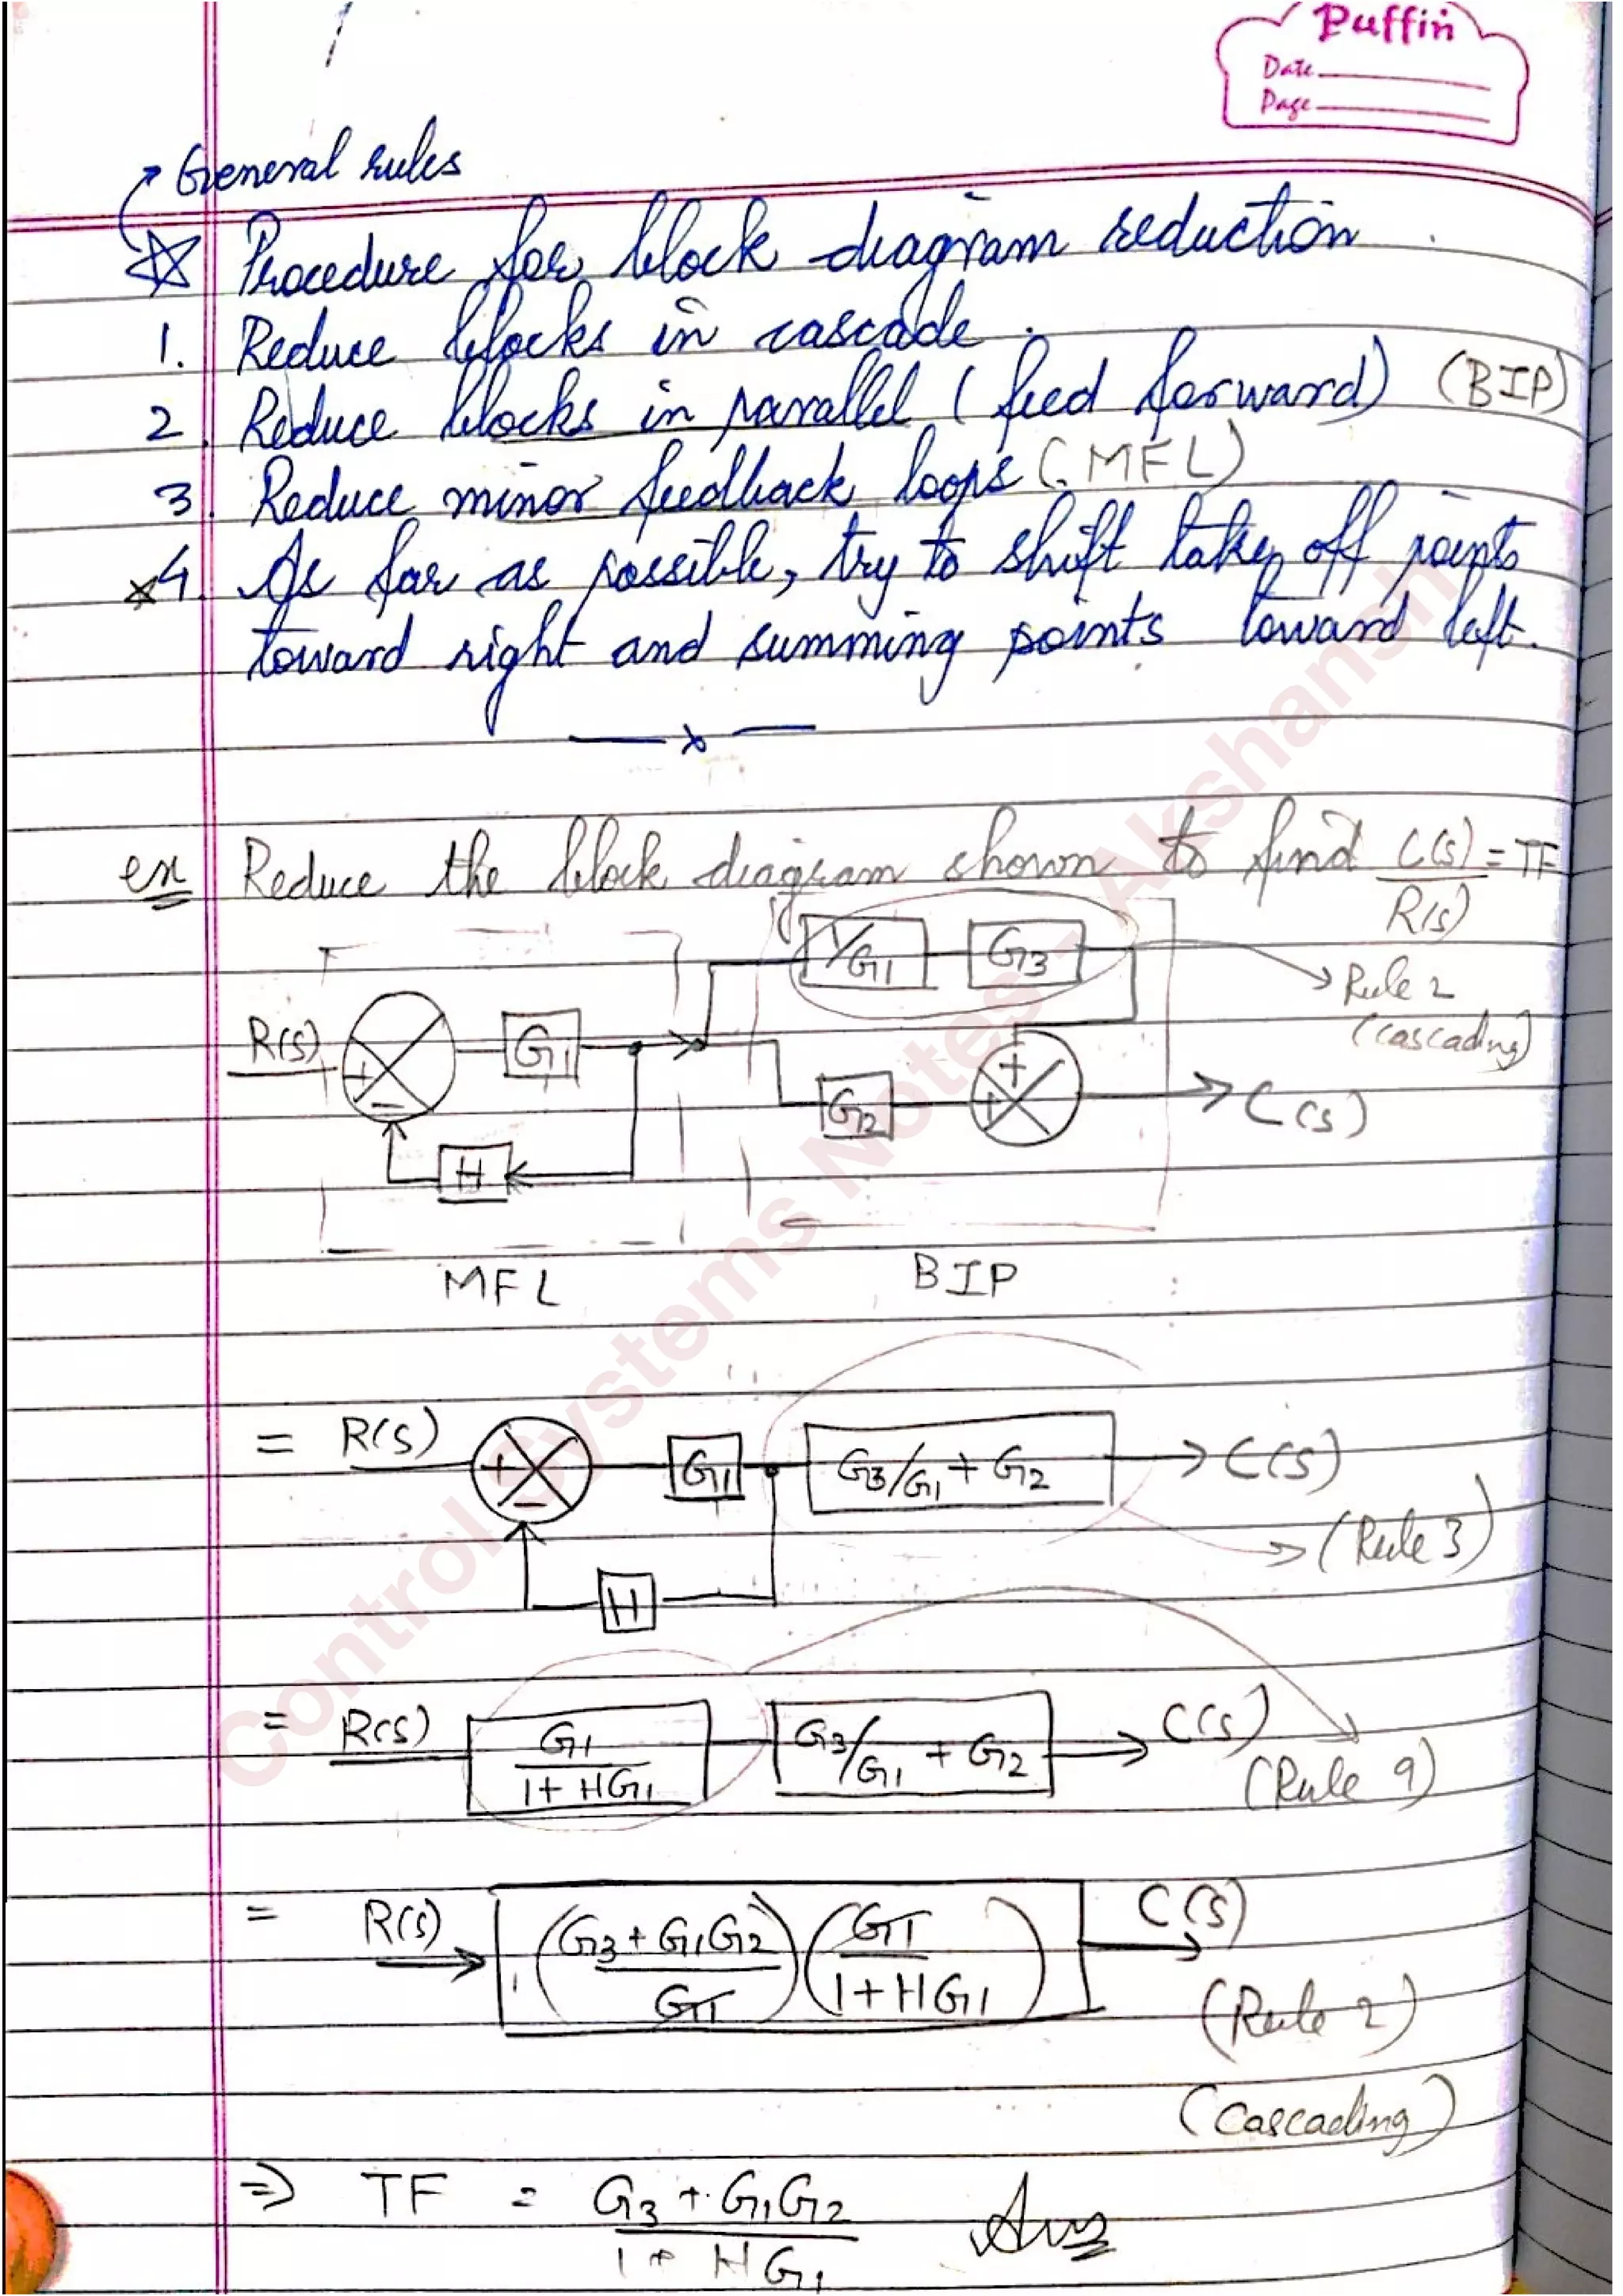 Puffin
Date
Page
General rules
☆ Procedure for block diagram reduction
1. Reduce blocks in cascade.
2. Reduce blocks in parallel (feed forward) (BIP)
3. Reduce minor feedback loops (MFL)
*4. As far as possible, try to shift take off points
toward right and summing points toward left.
— x —
ex Reduce the block diagram shown to find C(s)/R(s) = TF
1/G1 G3
→ Rule 2
(cascading)
R(s) + − G1 G2 + + → C(s)
H
MFL BIP
= R(s) + − G1 G3/G1 + G2 → C(s)
→ (Rule 3)
H
= R(s) G1/(1 + HG1) G3/G1 + G2 → C(s)
(Rule 9)
= R(s) → ((G3 + G1G2)/G1) (G1/(1 + HG1)) C(s)
(Rule 2)
(Cascading)
⇒ TF = (G3 + G1G2)/(1 + HG1) Ans
Control Systems Notes - Akshansh